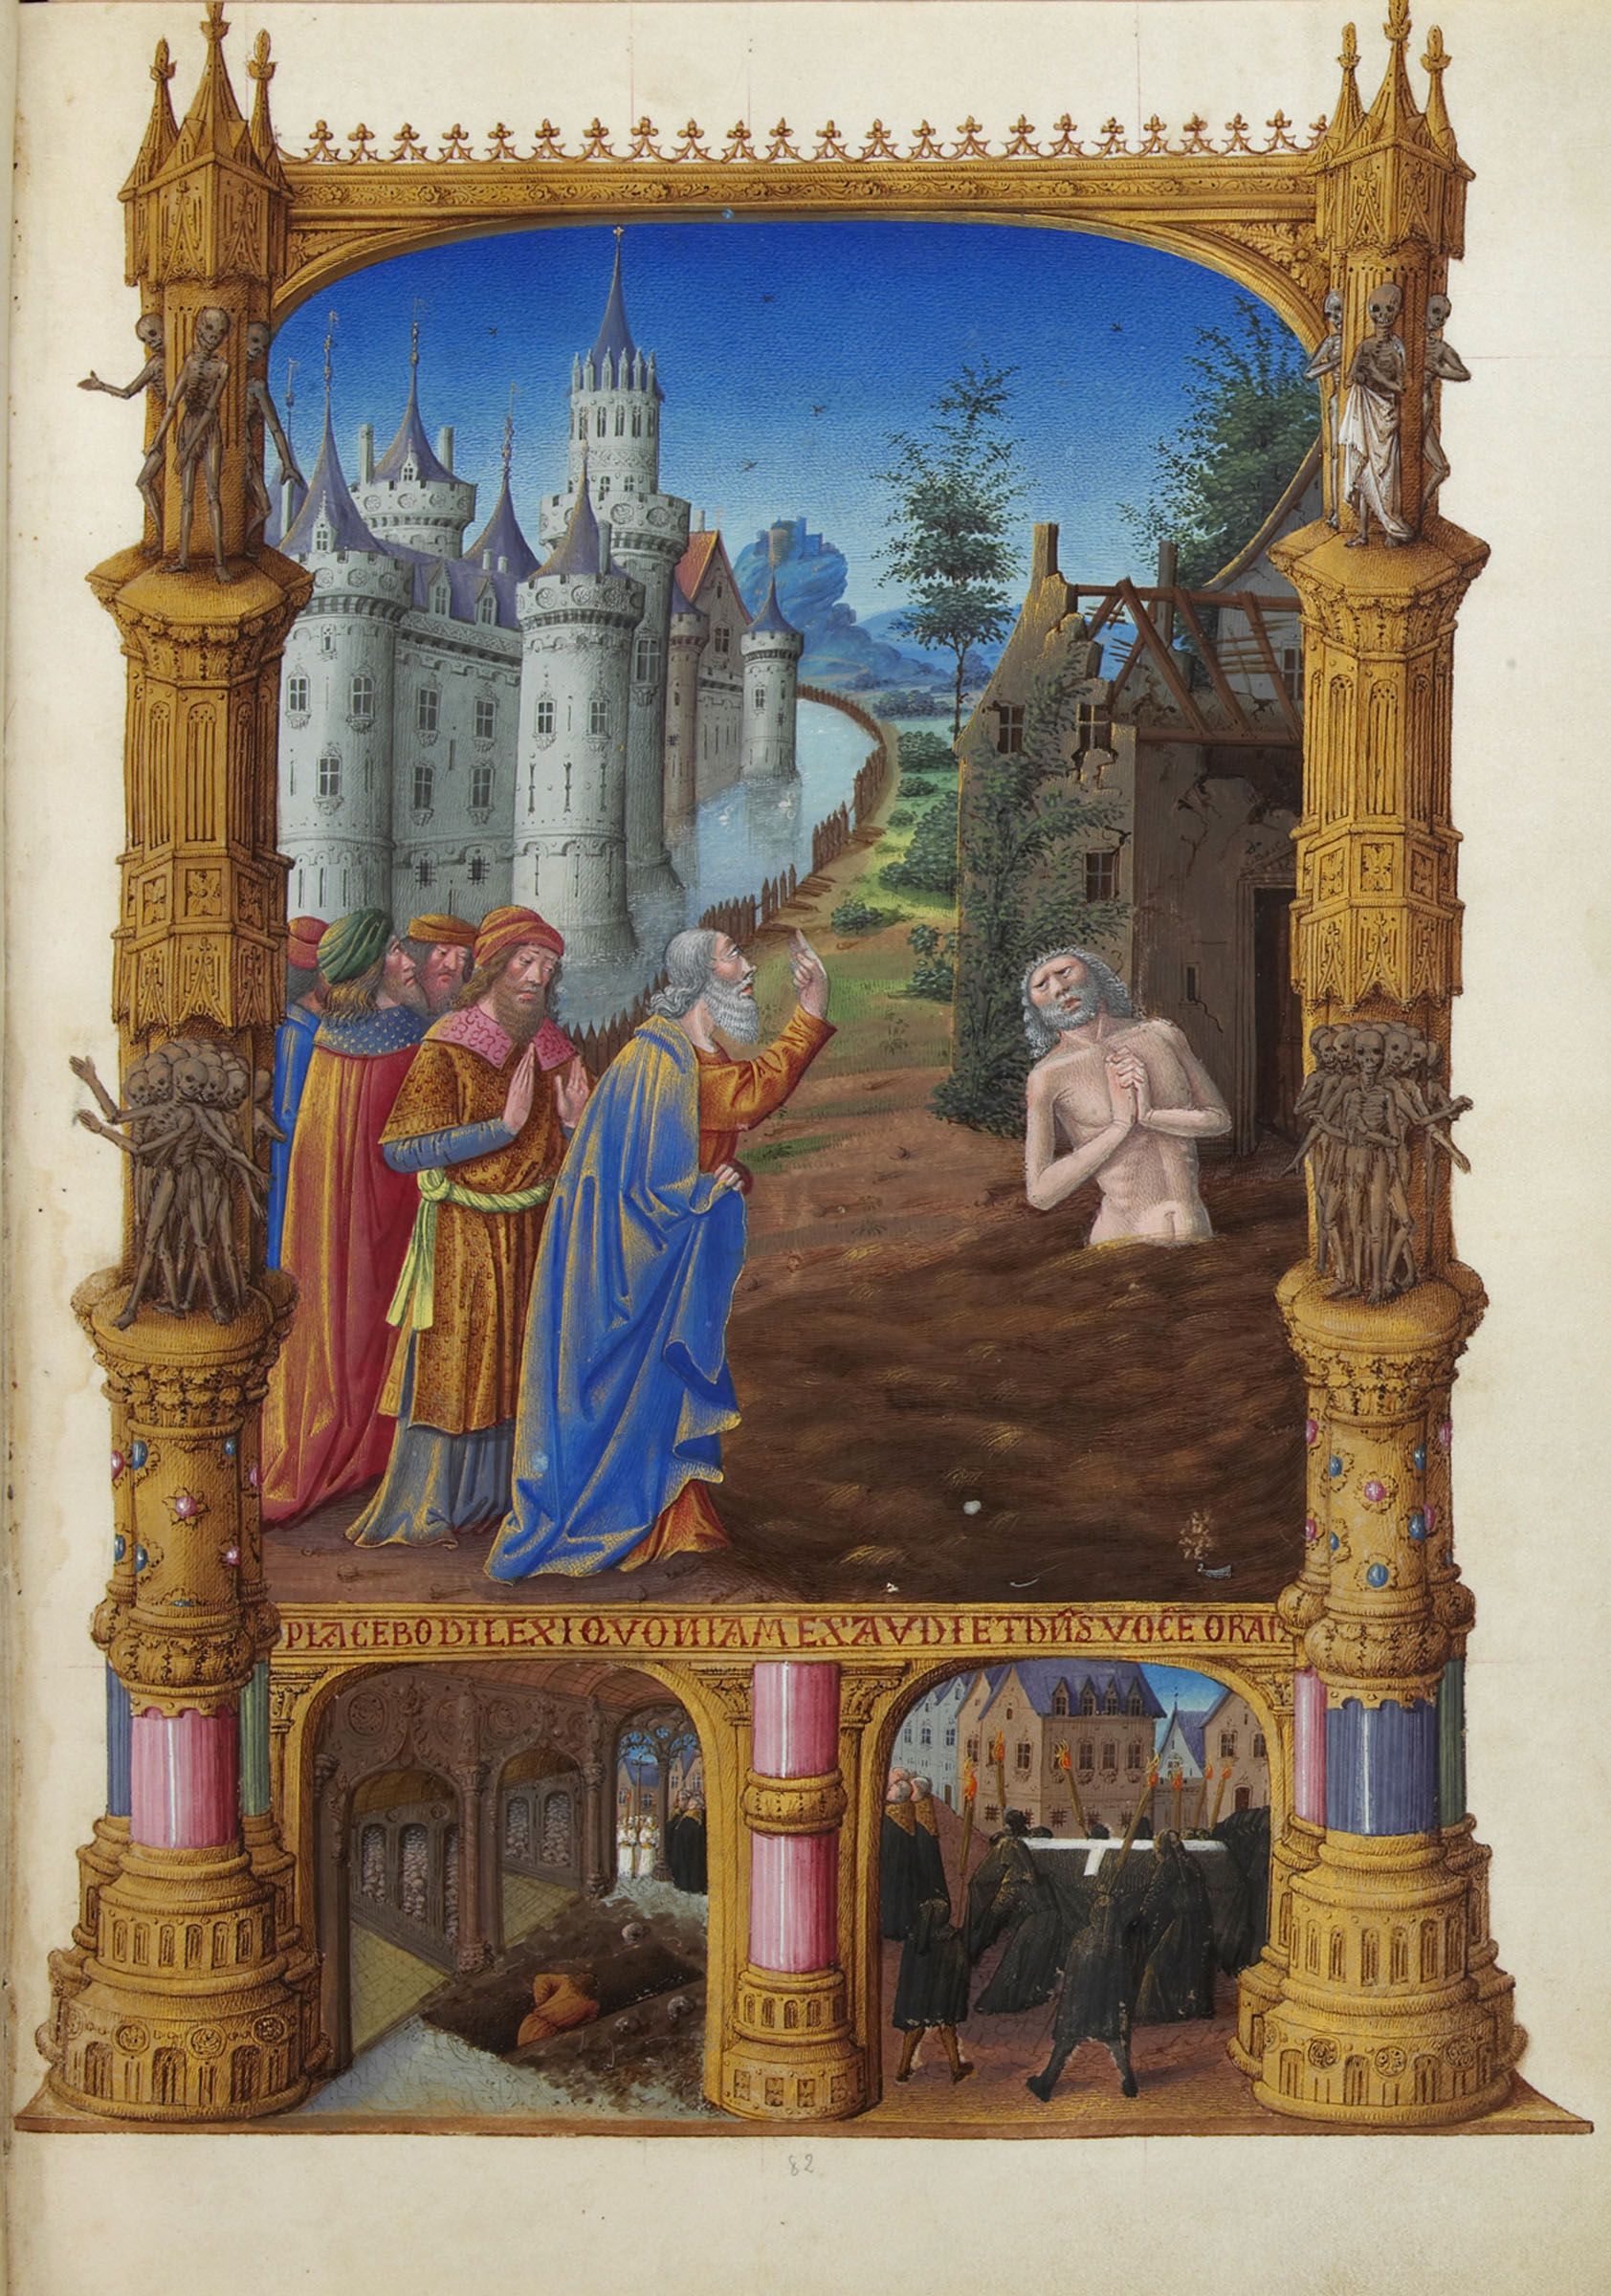 PLACEBO DILEXI QVONIAM EXAVDIET DÑS VOCĒ ORAT
82